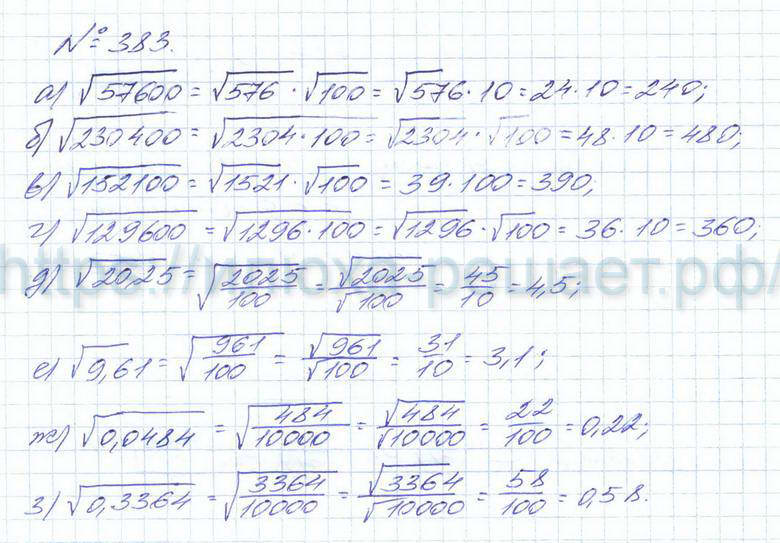 № 383.
а) √57600 = √576 · √100 = √576 · 10 = 24 · 10 = 240;
б) √230400 = √2304 · 100 = √2304 · √100 = 48 · 10 = 480;
в) √152100 = √1521 · √100 = 39 · 100 = 390;
г) √129600 = √1296 · 100 = √1296 · √100 = 36 · 10 = 360;
https://илюха-решает.рф/
д) √20,25 = √2025/100 = √2025/√100 = 45/10 = 4,5;
е) √9,61 = √961/100 = √961/√100 = 31/10 = 3,1;
ж) √0,0484 = √484/10000 = √484/√10000 = 22/100 = 0,22;
з) √0,3364 = √3364/10000 = √3364/√10000 = 58/100 = 0,58.